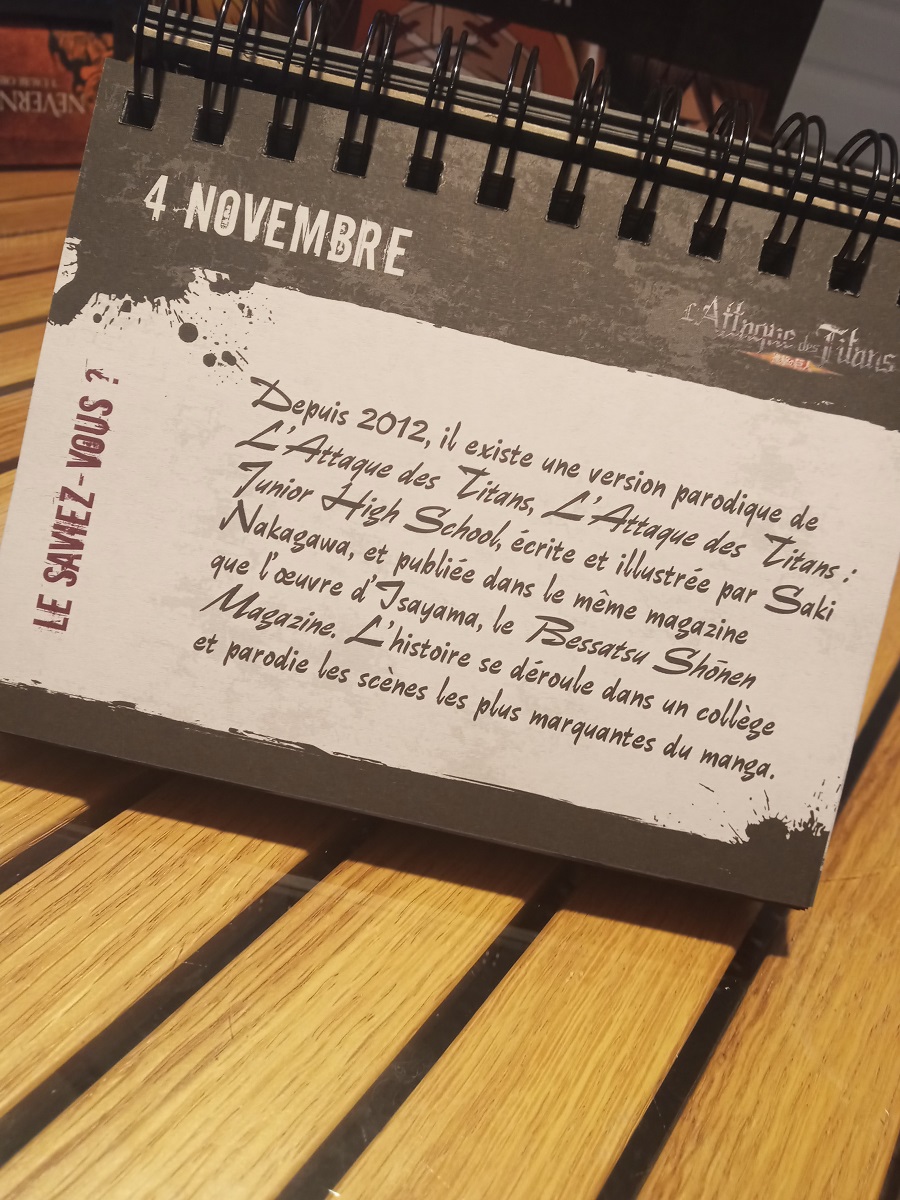 4 NOVEMBRE
L'Attaque des Titans
LE SAVIEZ-VOUS ?
Depuis 2012, il existe une version parodique de
L'Attaque des Titans, L'Attaque des Titans :
Junior High School, écrite et illustrée par Saki
Nakagawa, et publiée dans le même magazine
que l'œuvre d'Isayama, le Bessatsu Shōnen
Magazine. L'histoire se déroule dans un collège
et parodie les scènes les plus marquantes du manga.